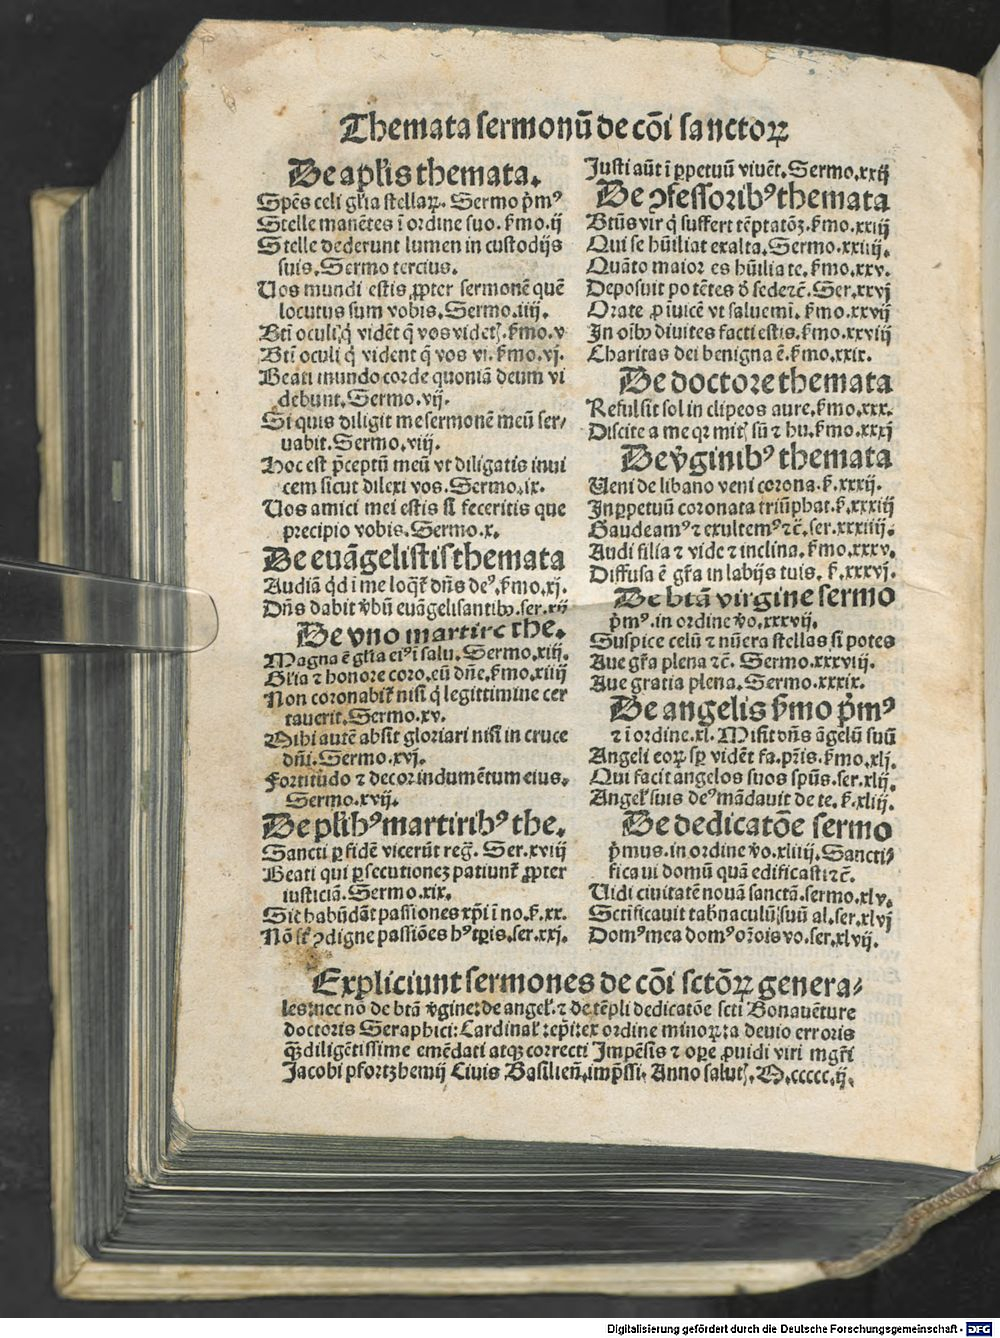 Themata sermonū de cōi sanctoꝝ
De aplis themata.
Spēs celi gl̄ia stellaꝝ. Sermo p̄mꝰ
Stelle manētes ī ordine suo. s̄mo.ij
Stelle dederunt lumen in custodijs
suis. Sermo tercius.
Uos mundi estis ꝓpter sermonē quē
locutus sum vobis. Sermo.iiij.
Bt̄i oculi q̇ vidēt q̄ vos videtꝭ. s̄mo.v
Bt̄i oculi q̇ vident q̄ vos vi. s̄mo.vj.
Beati mundo corde quoniā deum vi
debunt. Sermo.vij.
Si quis diligit me sermonē meū ser/
uabit. Sermo.viij.
Hoc est p̄ceptū meū vt diligatis inui
cem sicut dilexi vos. Sermo.ix.
Uos amici mei estis si feceritis que
precipio vobis. Sermo.x.
De euāgelistis themata
Audiā qd̓ ī me loqͥt̄ dn̄s deꝰ. s̄mo.xj.
Dn̄s dabit v̓bū euāgelisantibꝫ. ser.xij
De vno martire the.
Magna ē gl̄ia eiꝰ ī salu. Sermo.xiij.
Gl̄ia ⁊ honore coro. eū dn̄e. s̄mo.xiiij
Non coronabit̄ nisi q̇ legittimine cer
tauerit. Sermo.xv.
Mihi autē absit gloriari nisi in cruce
dn̄i. Sermo.xvj.
Fortitudo ⁊ decor indumētum eius.
Sermo.xvij.
De pl̄ibꝰ martiribꝰ the.
Sancti ꝑ fidē vicerūt reḡ. Ser.xviij
Beati qui ꝑsecutionez patiunt̄ ꝓpter
iusticiā. Sermo.xix.
Sic habūdāt passiones xp̄i ī no. s̄.xx.
Nō st̄ ꝯdigne passiōes hꝰ tp̄is. ser.xxj.
Justi aūt ī ꝑpetuū viuēt. Sermo.xxij
De ꝯfessoribꝰ themata
Bt̄us vir q̇ suffert tēptatōꝫ. s̄mo.xxiij
Qui se hūiliat exalta. Sermo.xxiiij.
Quāto maior es hūilia te. s̄mo.xxv.
Deposuit potētes d̓ sede ⁊c̄. Ser.xxvj
Orate ꝓ iuicē vt saluemi. s̄mo.xxvij
In oībꝫ diuites facti estis. s̄mo.xxviij
Charitas dei benigna ē. s̄mo.xxix.
De doctore themata
Refulsit sol in clipeos aure. s̄mo.xxx.
Discite a me qꝛ mitꝭ sū ⁊ hu. s̄mo.xxxj
De v̓ginibꝰ themata
Ueni de libano veni corona. s̄.xxxij.
In ꝑpetuū coronata triūphat. s̄.xxxiij
Gaudeamꝰ ⁊ exultemꝰ ⁊c̄. ser.xxxiiij.
Audi filia ⁊ vide ⁊ inclina. s̄mo.xxxv.
Diffusa ē gr̄a in labijs tuis. s̄.xxxvj.
De btā virgine sermo
p̄mꝰ. in ordine v̓o.xxxvij.
Suspice celū ⁊ nūera stellas si potes
Aue gr̄a plena ⁊c̄. Sermo.xxxviij.
Aue gratia plena. Sermo.xxxix.
De angelis s̄mo p̄mꝰ
⁊ ī ordine.xl. Misit dn̄s āgelū suū
Angeli eoꝝ sp̄ vidēt fa. pr̄is. s̄mo.xlj.
Qui facit angelos suos spūs. ser.xlij.
Angel̓ suis deꝰ mādauit de te. s̄.xliij.
De dedicatōe sermo
p̄mus. in ordine v̓o.xliiij. Sancti/
fica ui domū quā edificasti ⁊c̄.
Uidi ciuitatē nouā sanctā. sermo.xlv.
Sctificauit tabnaculū suū al. ser.xlvj
Domꝰ mea domꝰ or̄ois vo. ser.xlvij.
Expliciunt sermones de cōi sctōꝝ genera/
les: nec nō de btā v̓gine: de angel̓. ⁊ de tēpli dedicatōe scti Bonauēture
doctoris Seraphici: Cardinal̓ ⁊ ep̄i: ex ordine minoꝝ: a deuio erroris
qꝫ diligētissime emēdati atqꝫ correcti Impēsis ⁊ oꝑe ꝓuidi viri mgr̄i
Jacobi pfortzhemij Ciuis Basilieñ. imp̄ssi. Anno salutꝭ. M.ccccc.ij.
Digitalisierung gefördert durch die Deutsche Forschungsgemeinschaft - DFG